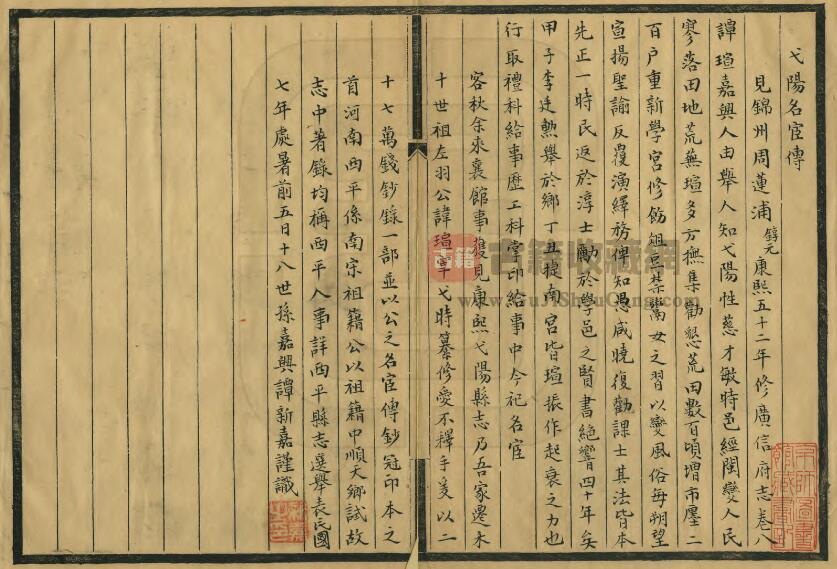 弋陽名宦傳
見錦州周蓮浦錞元康熙五十二年修廣信府志卷八
譚瑄嘉興人由舉人知弋陽性慈才敏時邑經閩變人民
寥落田地荒蕪瑄多方撫集勸懇荒田數百頃增市廛二
百户重新學宮修飭俎豆禁鬻女之習以變風俗每朔望
宣揚聖諭反覆演繹務俾知慿咸曉復勸課士其法皆本
先正一時民返於淳士勵於學邑之賢書絶響四十年矣
甲子李廷勲舉於鄉丁丑捷南宮皆瑄振作起衰之力也
行取禮科給事歷工科掌印給事中今祀名宦
客秋余來襄館事獲見康熙弋陽縣志乃吾家遷禾
十世祖左羽公諱瑄宰弋時纂修愛不釋手爰以二
十七萬錢鈔錄一部並以公之名宦傳鈔冠印本之
首河南西平係南宗祖籍公以祖籍中順天鄉試故
志中著錄均稱西平人事詳西平縣志選舉表民國
七年處暑前五日十八世孫嘉興譚新嘉謹識
古籍
古籍收藏網